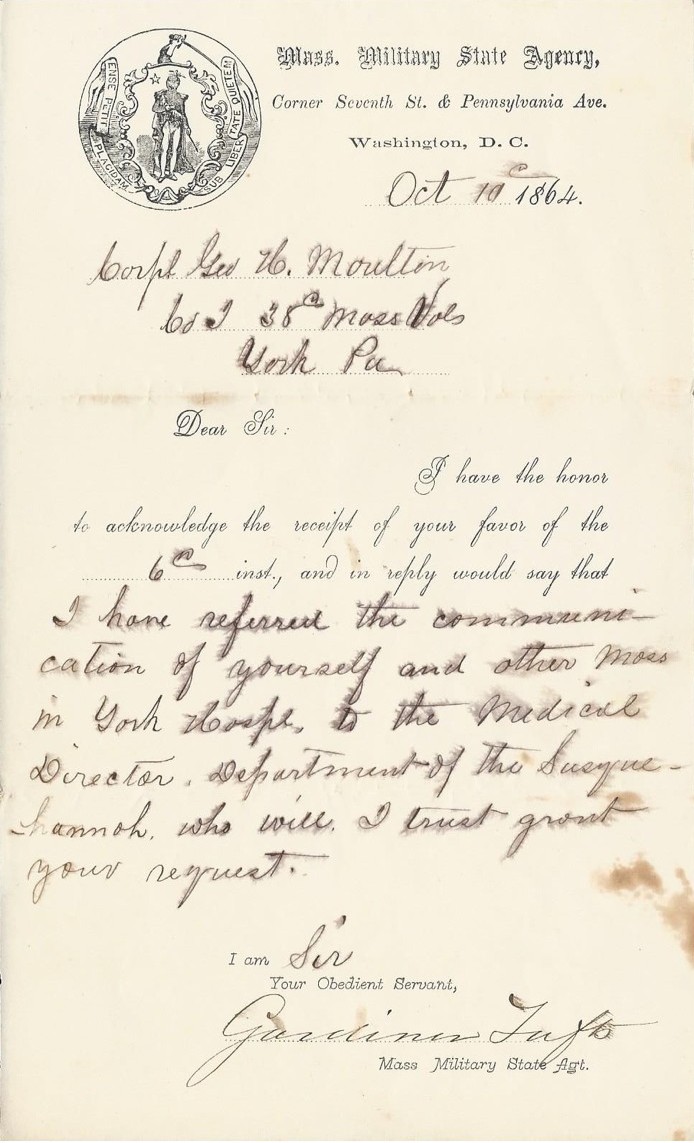 ENSE PETIT PLACIDAM SUB LIBERTATE QUIETEM
Mass. Military State Agency,
Corner Seventh St. & Pennsylvania Ave.
Washington, D. C.
Oct 10th 1864.
Corpl Geo H. Moulton
Co I 38th Mass Vols
York Pa
Dear Sir:
I have the honor
to acknowledge the receipt of your favor of the
6th inst., and in reply would say that
I have referred the communi-
cation of yourself and other Mass
in York Hospl, to the Medical
Director, Department of the Susque-
hannah, who will, I trust grant
your request.
I am Sir
Your Obedient Servant,
Gardiner Tufts
Mass Military State Agt.